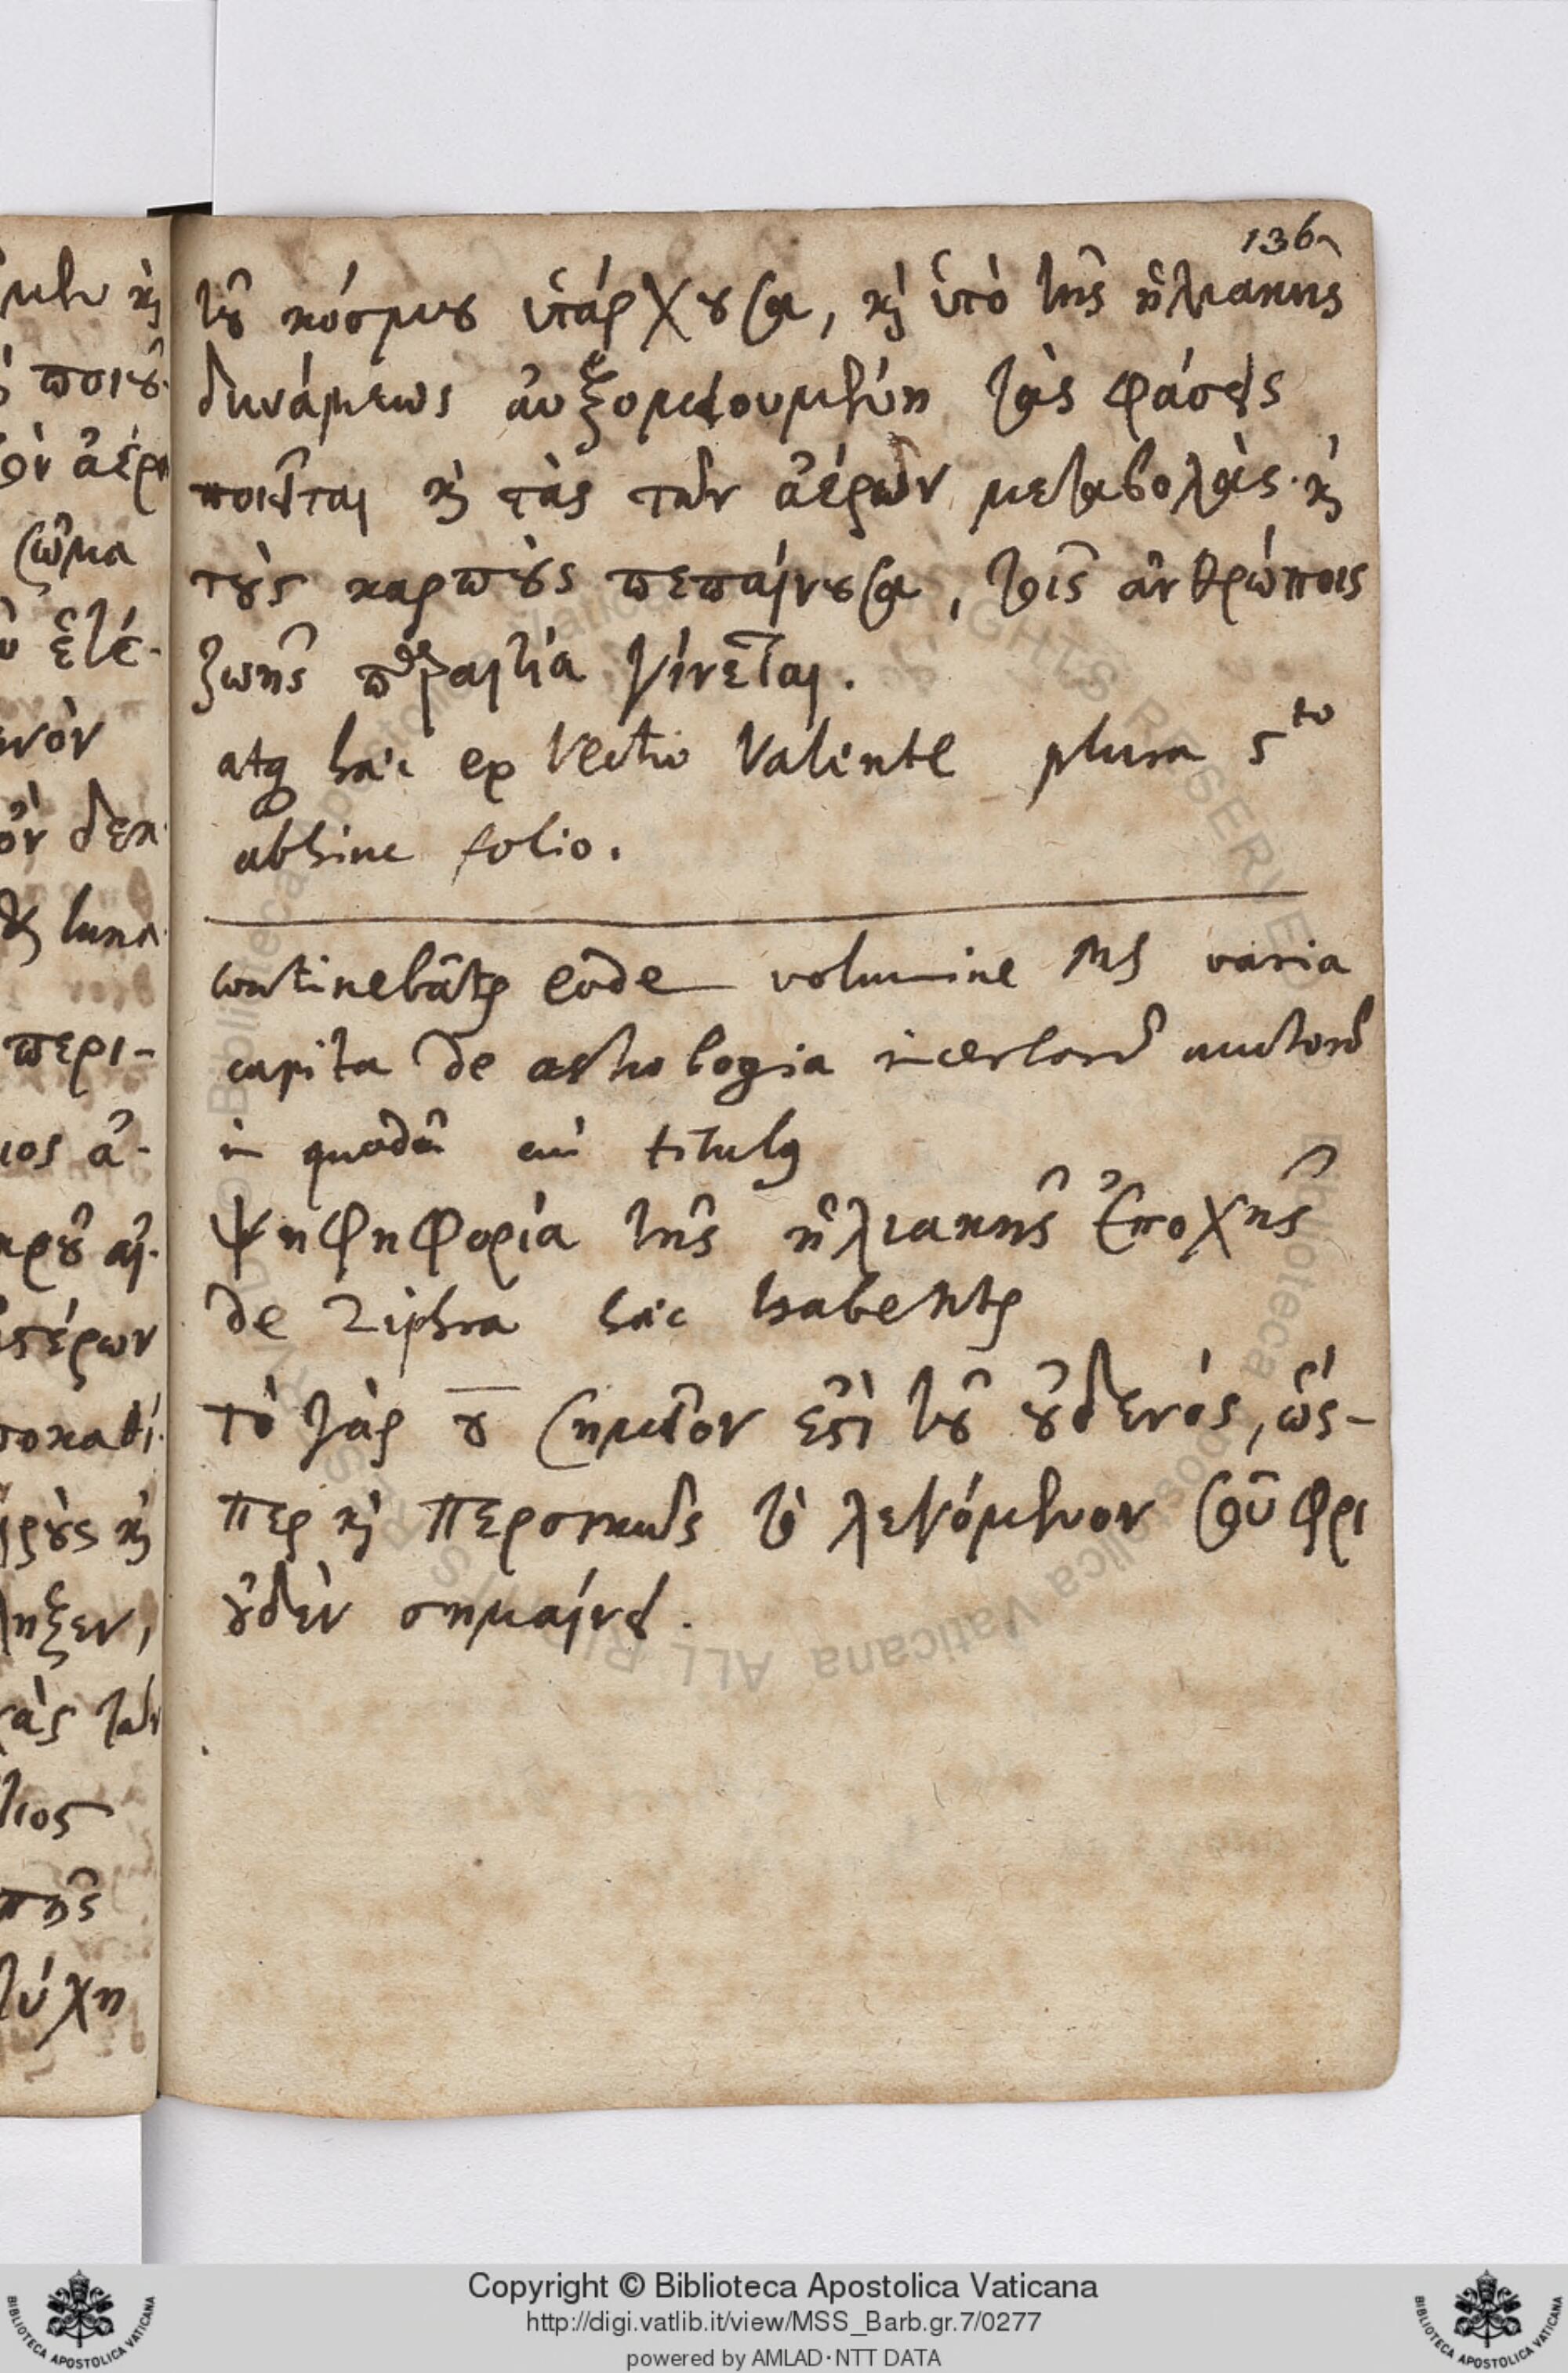 136
τοῦ κόσμου ὑπάρχουσα, καὶ ὑπὸ τῆς ἡλιακῆς
δυνάμεως αὐξομειουμένη τὰς φάσεις
ποιεῖται καὶ τὰς τῶν ἀέρων μεταβολὰς· καὶ
τοὺς καρποὺς πεπαίνουσα, τοῖς ἀνθρώποις
ζωῆς παραιτία γίνεται.
atq haec ex Vectio Valente plura 5to
abhinc folio.
continebātr eōdē volumine MS varia
capita de astrologia incertorū auctorū
in quodā cui titulus
ψηφηφορία τῆς ἡλιακῆς ἐποχῆς
de ziphra haec habentr
τὸ γὰρ ο̅υ̅ σημεῖον ἐπὶ τοῦ οὐδενός, ὥσ-
περ καὶ περσικῶς τὸ λεγόμενον σοῦφρι
οὐδὲν σημαίνει.
μεν καὶ
ποιου-
ὸν ἀέρι
σῶμα
ἐτέ-
ινὸν
ὸν δεκ
& luna
περι-
ιος ἀ-
κροῦ αἰ-
στέρων
ποκαθί-
ροὺς καὶ
ληξεν,
ρὰς τῶν
λιος
πῆς
τύχη
Copyright © Biblioteca Apostolica Vaticana
http://digi.vatlib.it/view/MSS_Barb.gr.7/0277
powered by AMLAD·NTT DATA
BIBLIOTECA APOSTOLICA VATICANA
BIBLIOTECA APOSTOLICA VATICANA